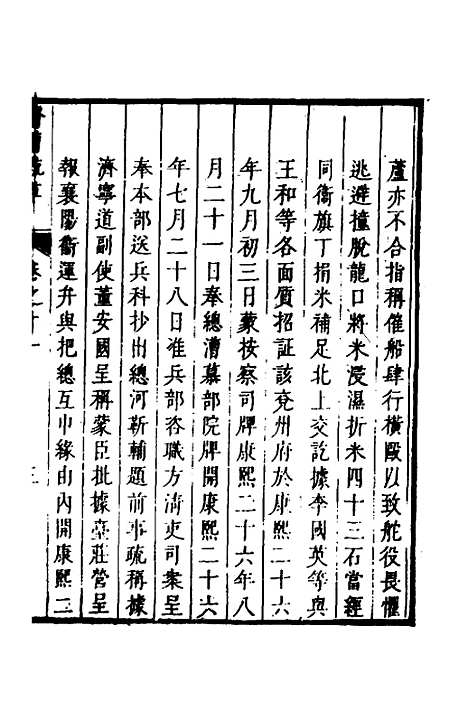 蘆亦不合指稱催船肆行橫毆以致舵役畏懼
逃避撞脫龍口將米浸濕折米四十三石當經
同衛旗丁捐米補足北上交訖據李國英等與
王和等各面質招証該兗州府於康熙二十六
年九月初三日蒙按察司牌康熙二十六年八
月二十一日奉總漕慕部院牌開康熙二十六
年七月二十八日准兵部咨職方清吏司案呈
奉本部送兵科抄出總河靳輔題前事疏稱據
濟寧道副使董安國呈稱蒙臣批據臺莊營呈
報襄陽衛運弁與把總互申緣由內開康熙二
卷之十一
三